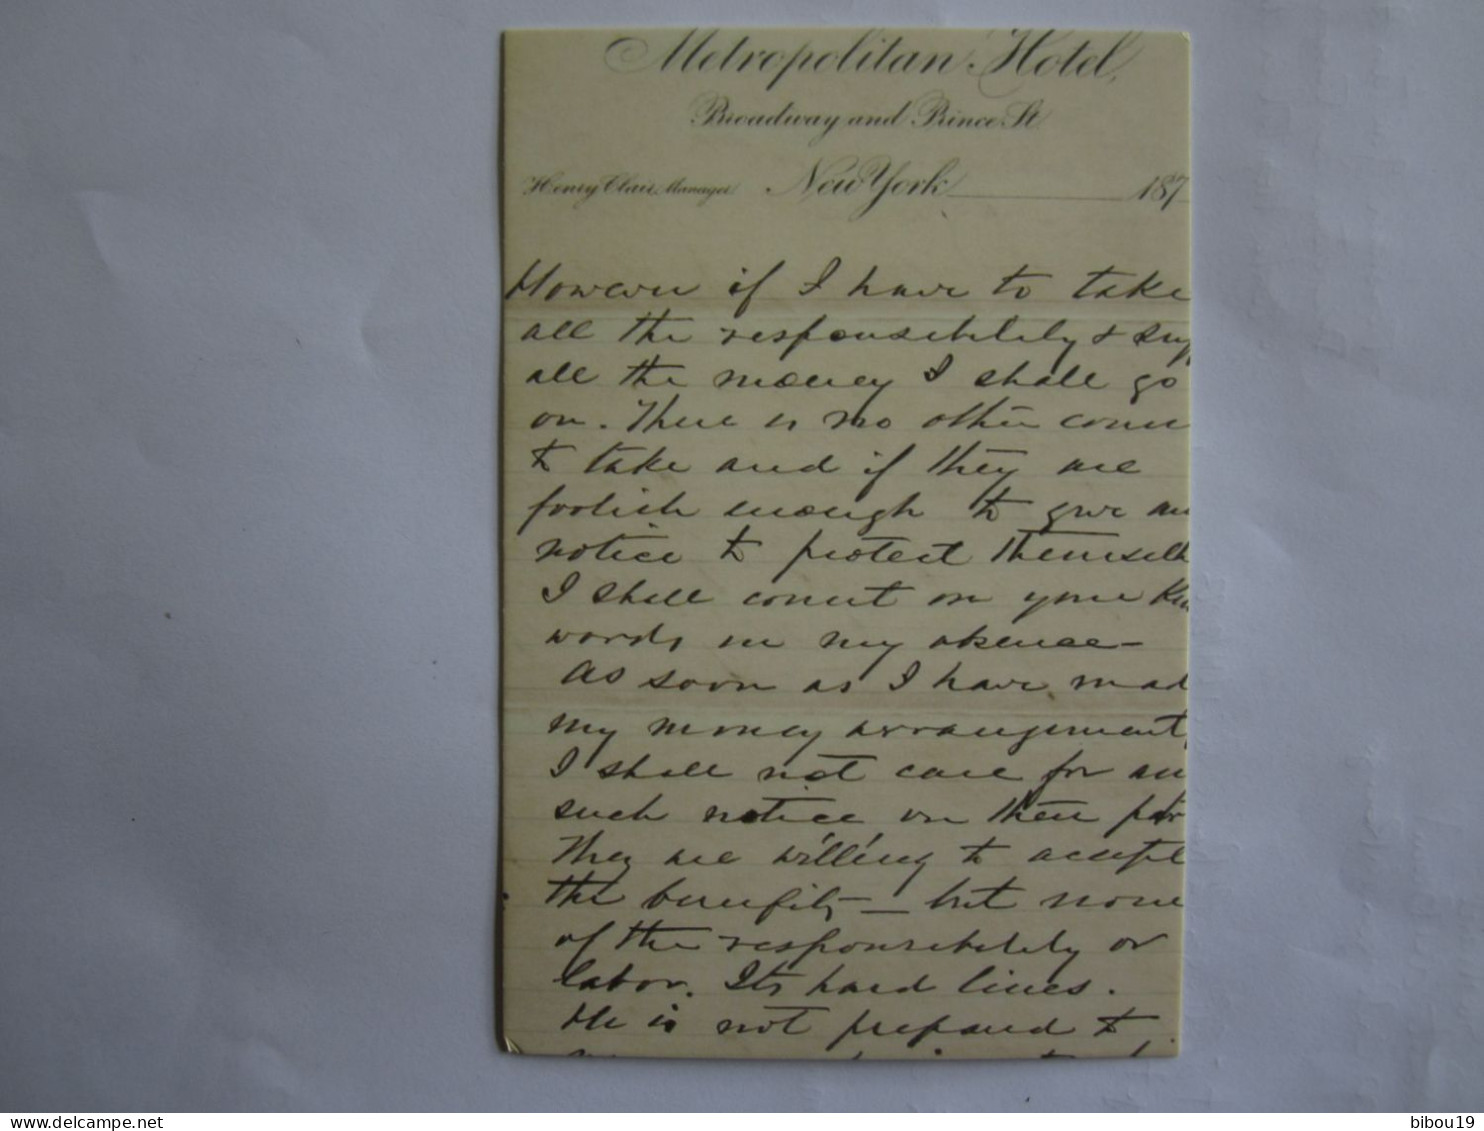 Metropolitan Hotel,
Broadway and Prince St
Henry Clair, Manager. New York 187
However if I have to take
all the responsibility & sup
all the money I shall go
on. There is no other cour
to take and if they are
foolish enough to give an
notice to protect themselv
I shall count on your kin
words in my absence —
As soon as I have mad
my money arrangement,
I shall not care for an
such notice on their par
They are willing to accept
the benefits — but none
of the responsibility or
labor. Its hard lines.
He is not prepared to
delcampe.net
bibou19